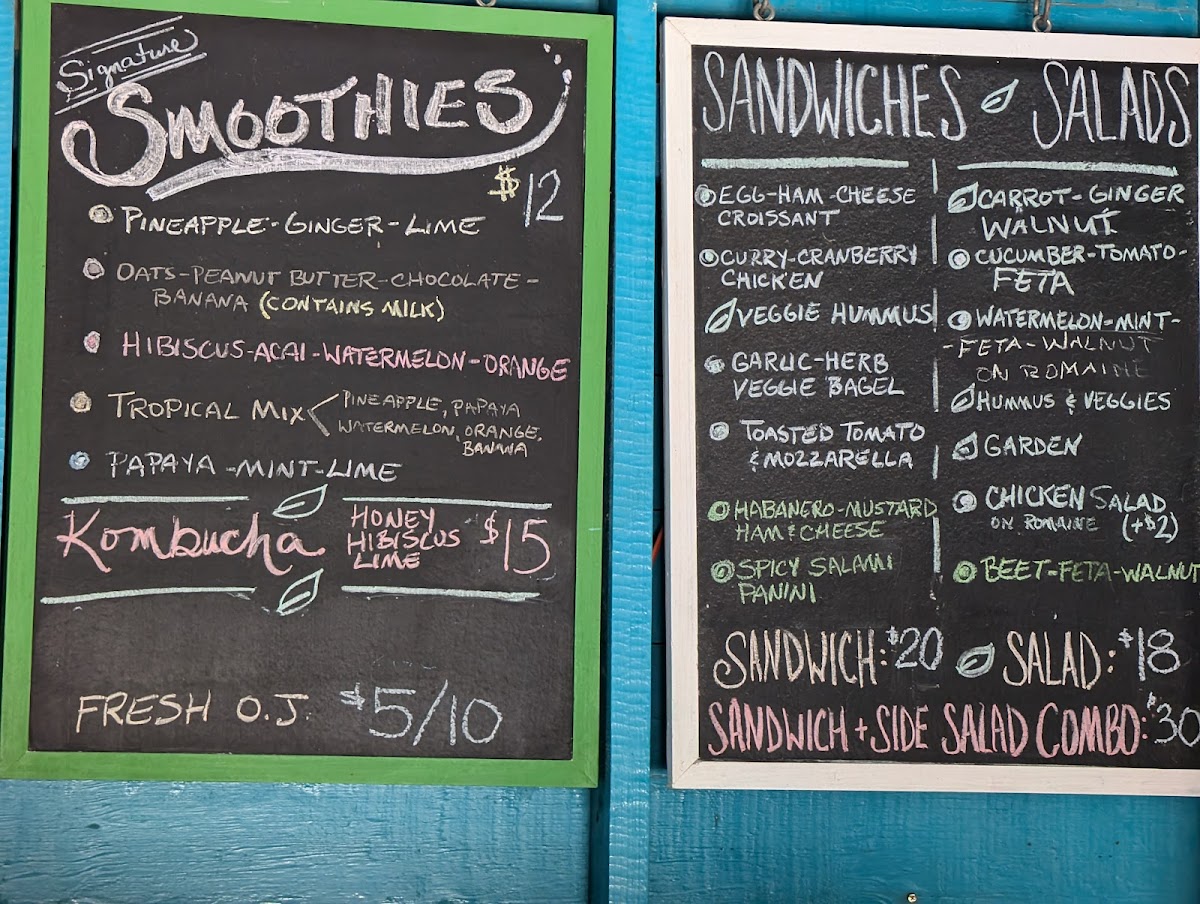 Signature
SMOOTHIES
$12
PINEAPPLE-GINGER-LIME
OATS-PEANUT BUTTER-CHOCOLATE-
BANANA (CONTAINS MILK)
HIBISCUS-ACAI-WATERMELON-ORANGE
TROPICAL MIX < PINEAPPLE, PAPAYA
WATERMELON, ORANGE,
BANANA
PAPAYA-MINT-LIME
Kombucha
HONEY
HIBISCUS
LIME
$15
FRESH O.J. $5/10
SANDWICHES SALADS
EGG-HAM-CHEESE
CROISSANT
CURRY-CRANBERRY
CHICKEN
VEGGIE HUMMUS
GARLIC-HERB
VEGGIE BAGEL
TOASTED TOMATO
& MOZZARELLA
HABANERO-MUSTARD
HAM & CHEESE
SPICY SALAMI
PANINI
CARROT-GINGER
WALNUT
CUCUMBER-TOMATO-
FETA
WATERMELON-MINT-
-FETA-WALNUT
ON ROMAINE
HUMMUS & VEGGIES
GARDEN
CHICKEN SALAD
ON ROMAINE (+$2)
BEET-FETA-WALNUT
SANDWICH: $20 SALAD: $18
SANDWICH + SIDE SALAD COMBO: $30